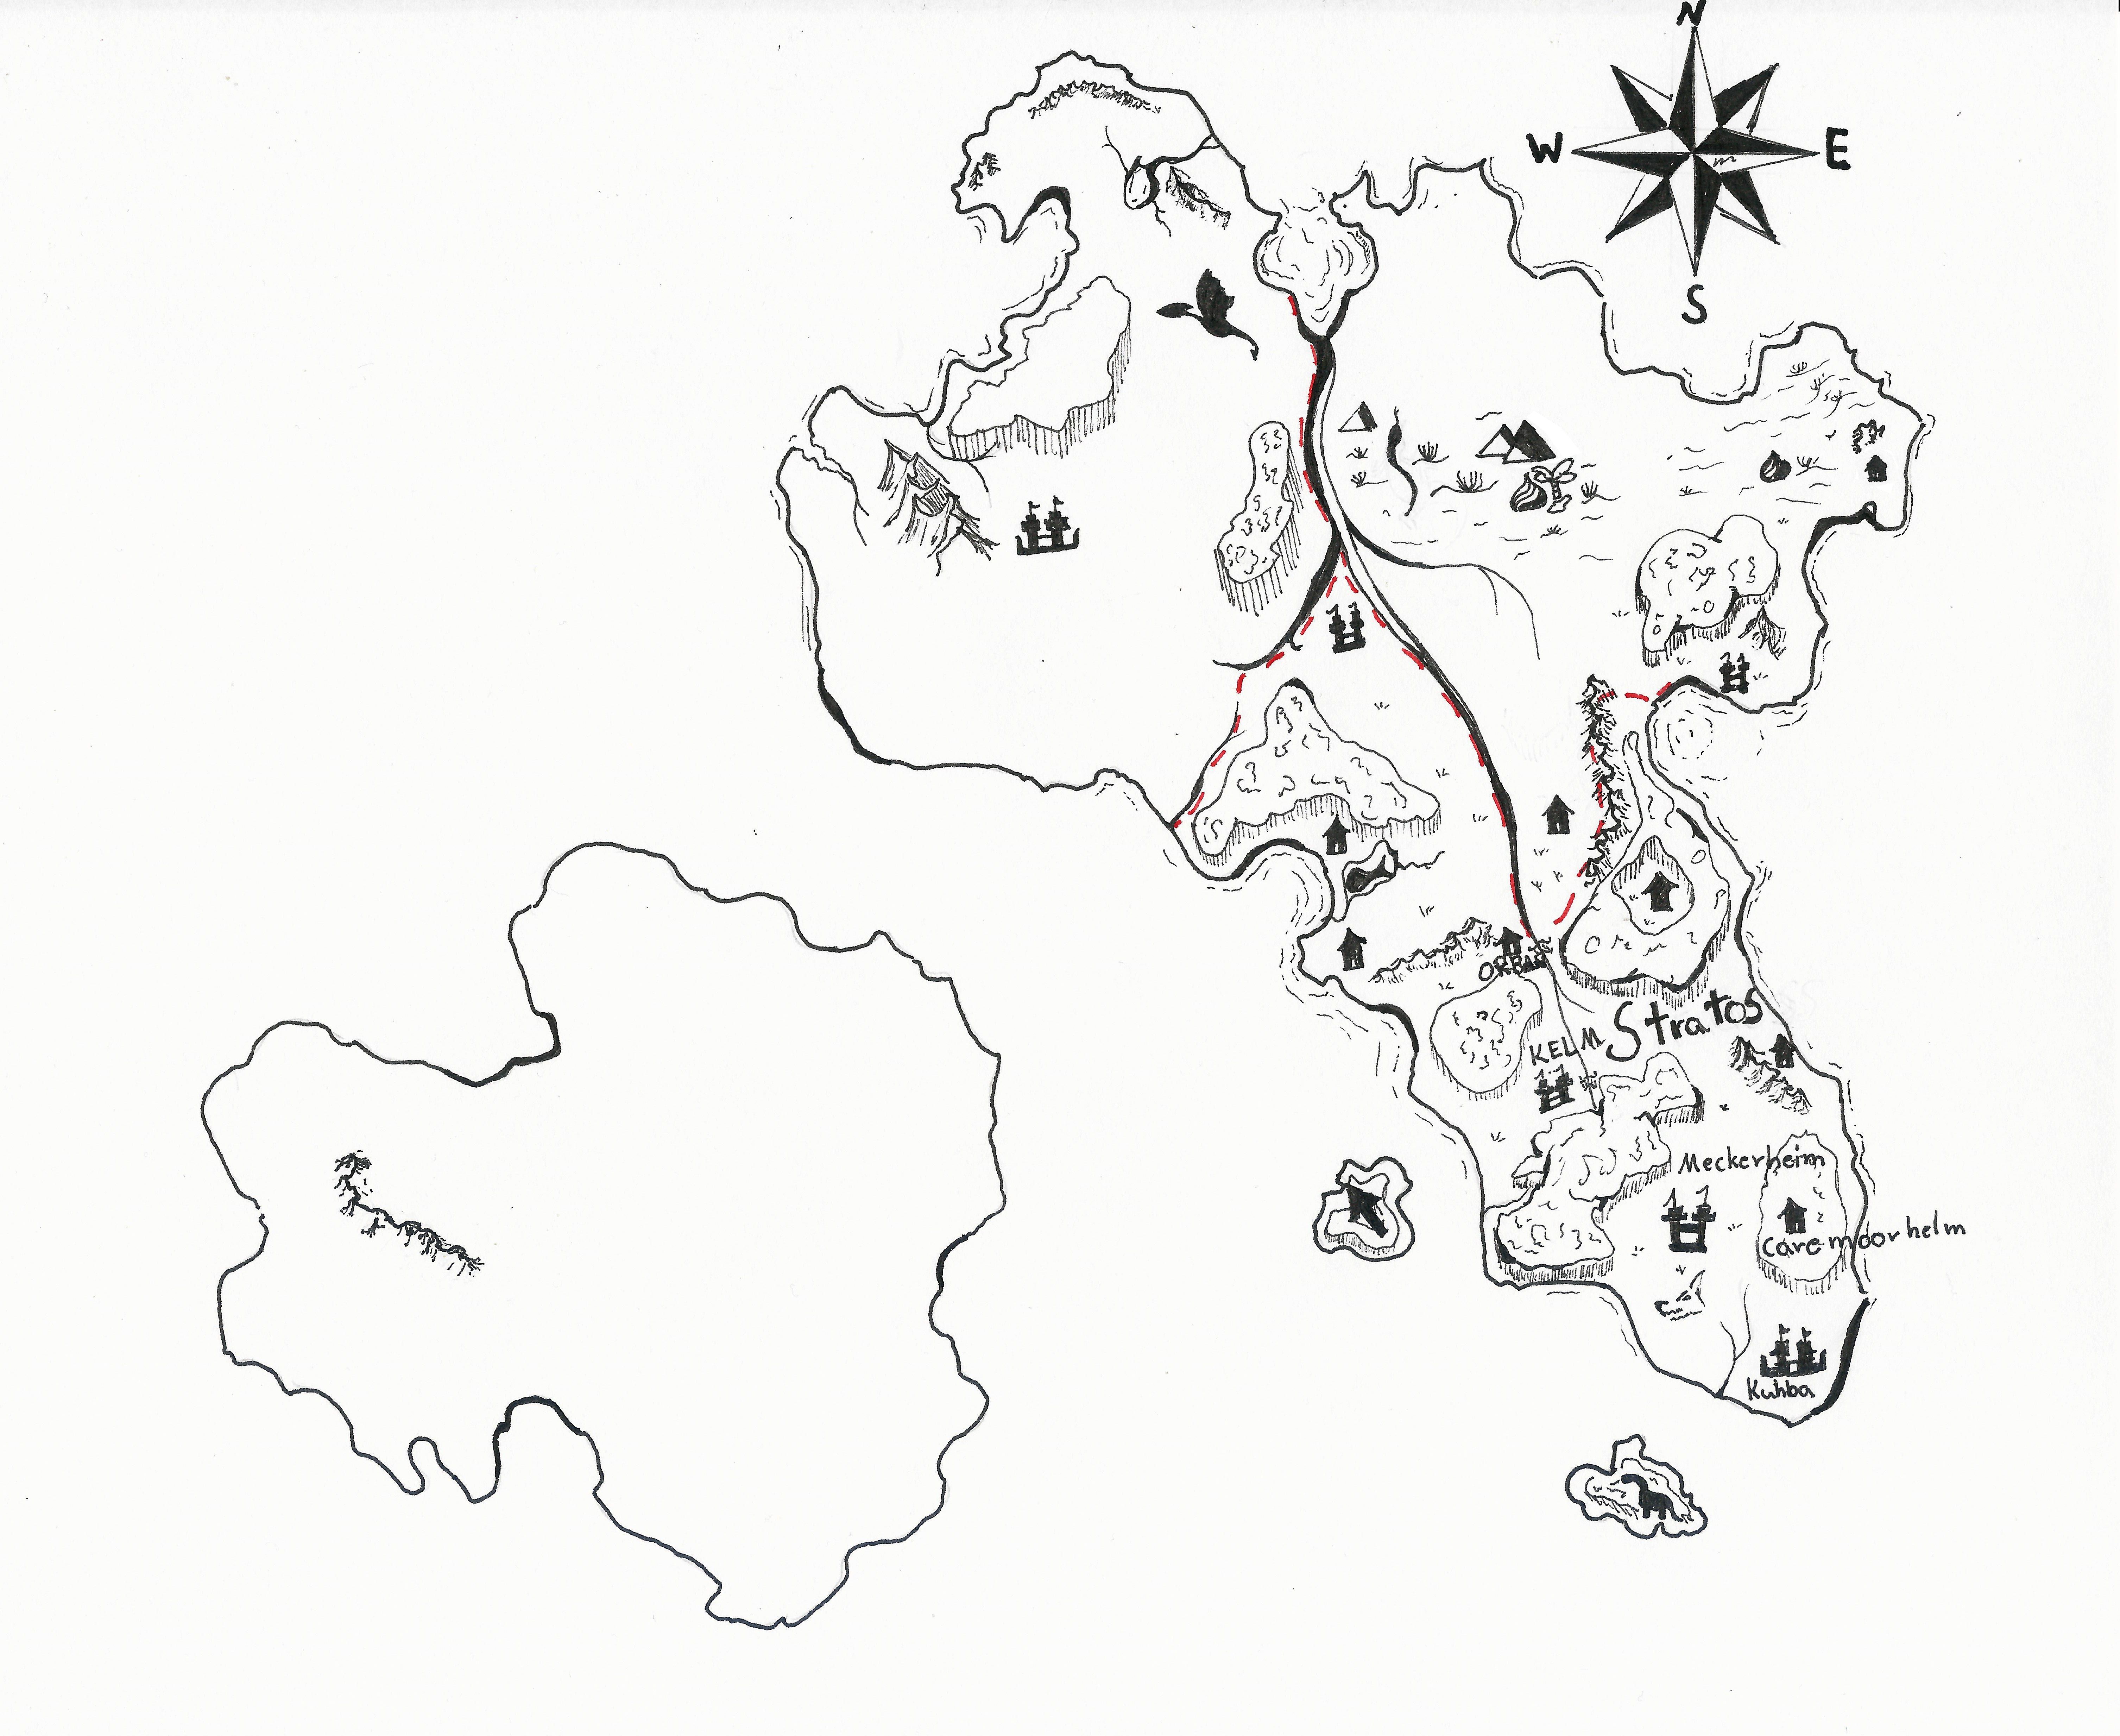 N
W E
S
ORBAN
Stratos
KELM
Meckerheim
Caremoorhelm
Kuhba